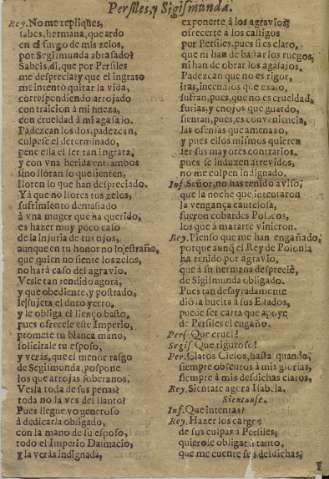 Persiles, y Sigismunda.
Rey. No me repliques,
sabes, hermana, que ardo
en el fuego de mis zelos,
por Segismunda abrasado?
Sabeis, di, que por Persiles
me desprecia; y que el ingrato
me intentò quitar la vida,
correspondiendo arrojado
con traicion à mi fineza,
con crueldad à mi agasajo.
Padezcan los dos, padezcan,
culpese el determinado,
pene ella el ser tan ingrata,
y con vna herida entrambos
sino lloran lo que sienten,
lloren lo que han despreciado.
Yà que no llores tus zelos,
sufrimiento demasiado
à vna muger que ha querido,
es hazer muy poco caso
de la injuria de tus ojos,
aunque en tu honor no lo estraño,
que quien no siente los zelos,
no harà caso del agravio.
Vesle tan rendido agora,
y que obediente, y postrado,
le sujeta el duro yerro,
y le obliga el fiero basto,
pues ofrecele este Imperio,
promete tu blanca mano,
solicitale tu esposo,
y veràs, que el menor rasgo
de Segismunda, pospone
los que arrojas soberanos.
Vesla toda de sus penas?
toda no la ves del llanto?
Pues llegue yo generoso
à dedicarla obligado,
con la mano de su esposo,
todo el Imperio Dalmacio,
y la veràs indignada,
exponerte à los agravios,
ofrecerte à los castigos
por Persiles, pues es claro,
que ni han de bastar los ruegos,
ni han de obrar los agasajos.
Padezcan que no es rigor,
iras, incendios que exalo,
sufran, pues, que no es crueldad,
furias, y enojos que guardo,
sientan, pues, es conveniencia,
las ofensas que amenazo,
y pues ellos mismos quieren
ser sus mayores contrarios,
pues se induzen atrevidos,
no me culpen indignado.
Inf. Señor, no has tenido aviso,
que la noche que intentaron
la vengança cautelosa,
fueron cobardes Polacos,
los que à matarte vinieron.
Rey. Pienso que me han engañado,
porque aunq̃ el Rey de Polonia
ha tenido por agravio,
que à su hermana desprecie,
de Sigismunda obligado.
Pues tan desayradamente
diò la buelta à sus Estados,
puede ser carta que apoye
de Persiles el engaño.
Pers. Que cruel!
Segis. Que riguroso!
Per. Claros Cielos, basta quando,
siempre obscuros à mis glorias,
siempre à mis desdichas claros,
Rey. Sientate agora Isabela.
Sientanse.
Inf. Que intentas?
Rey. Hazer los cargos
de sus culpas à Persiles,
quierole obligar tanto,
que me cuente sus desdichas,